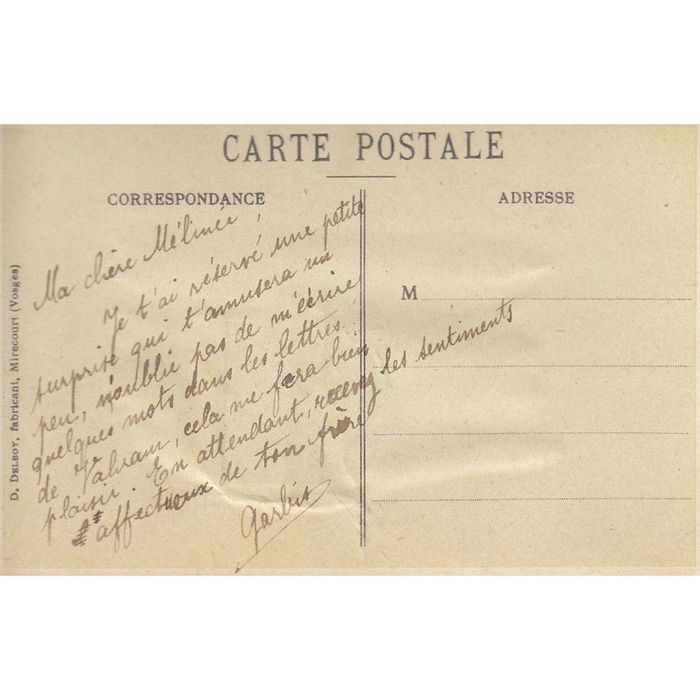 CARTE POSTALE
CORRESPONDANCE
ADRESSE
Ma chère Mélinée,
Je t'ai réservé une petite
surprise qui t'amusera un
peu, n'oublie pas de m'écrire
quelques mots dans les lettres
de Vahram, cela me fera bien
plaisir. En attendant, recevez les sentiments
affectueux de ton frère
Garbis
M
D. DELBOY, fabricant, Mirecourt (Vosges)